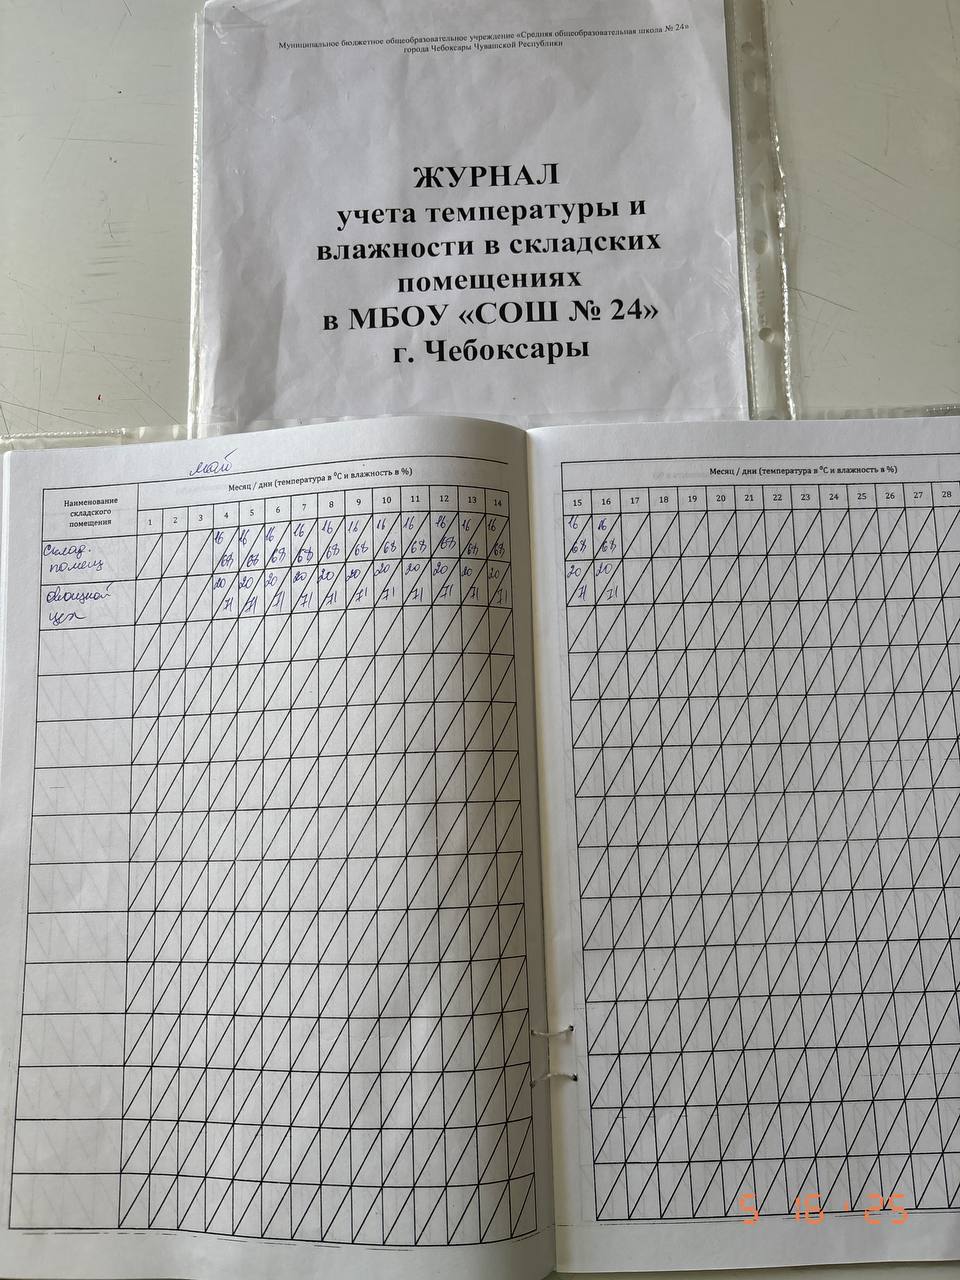 Муниципальное бюджетное общеобразовательное учреждение «Средняя общеобразовательная школа № 24»
города Чебоксары Чувашской Республики
ЖУРНАЛ
учета температуры и
влажности в складских
помещениях
в МБОУ «СОШ № 24»
г. Чебоксары
май
Месяц / дни (температура в ⁰С и влажность в %)
Наименование
складского
помещения
1 2 3 4 5 6 7 8 9 10 11 12 13 14
Склад.
помещ
16 16 16 16 16 16 16 16 16 16 16
68 68 68 68 68 68 68 68 68 68 68
Овощной
цех
20 20 20 20 20 20 20 20 20 20 20
71 71 71 71 71 71 71 71 71 71 71
Месяц / дни (температура в ⁰С и влажность в %)
15 16 17 18 19 20 21 22 23 24 25 26 27 28
16 16
68 68
20 20
71 71
5 16 '25